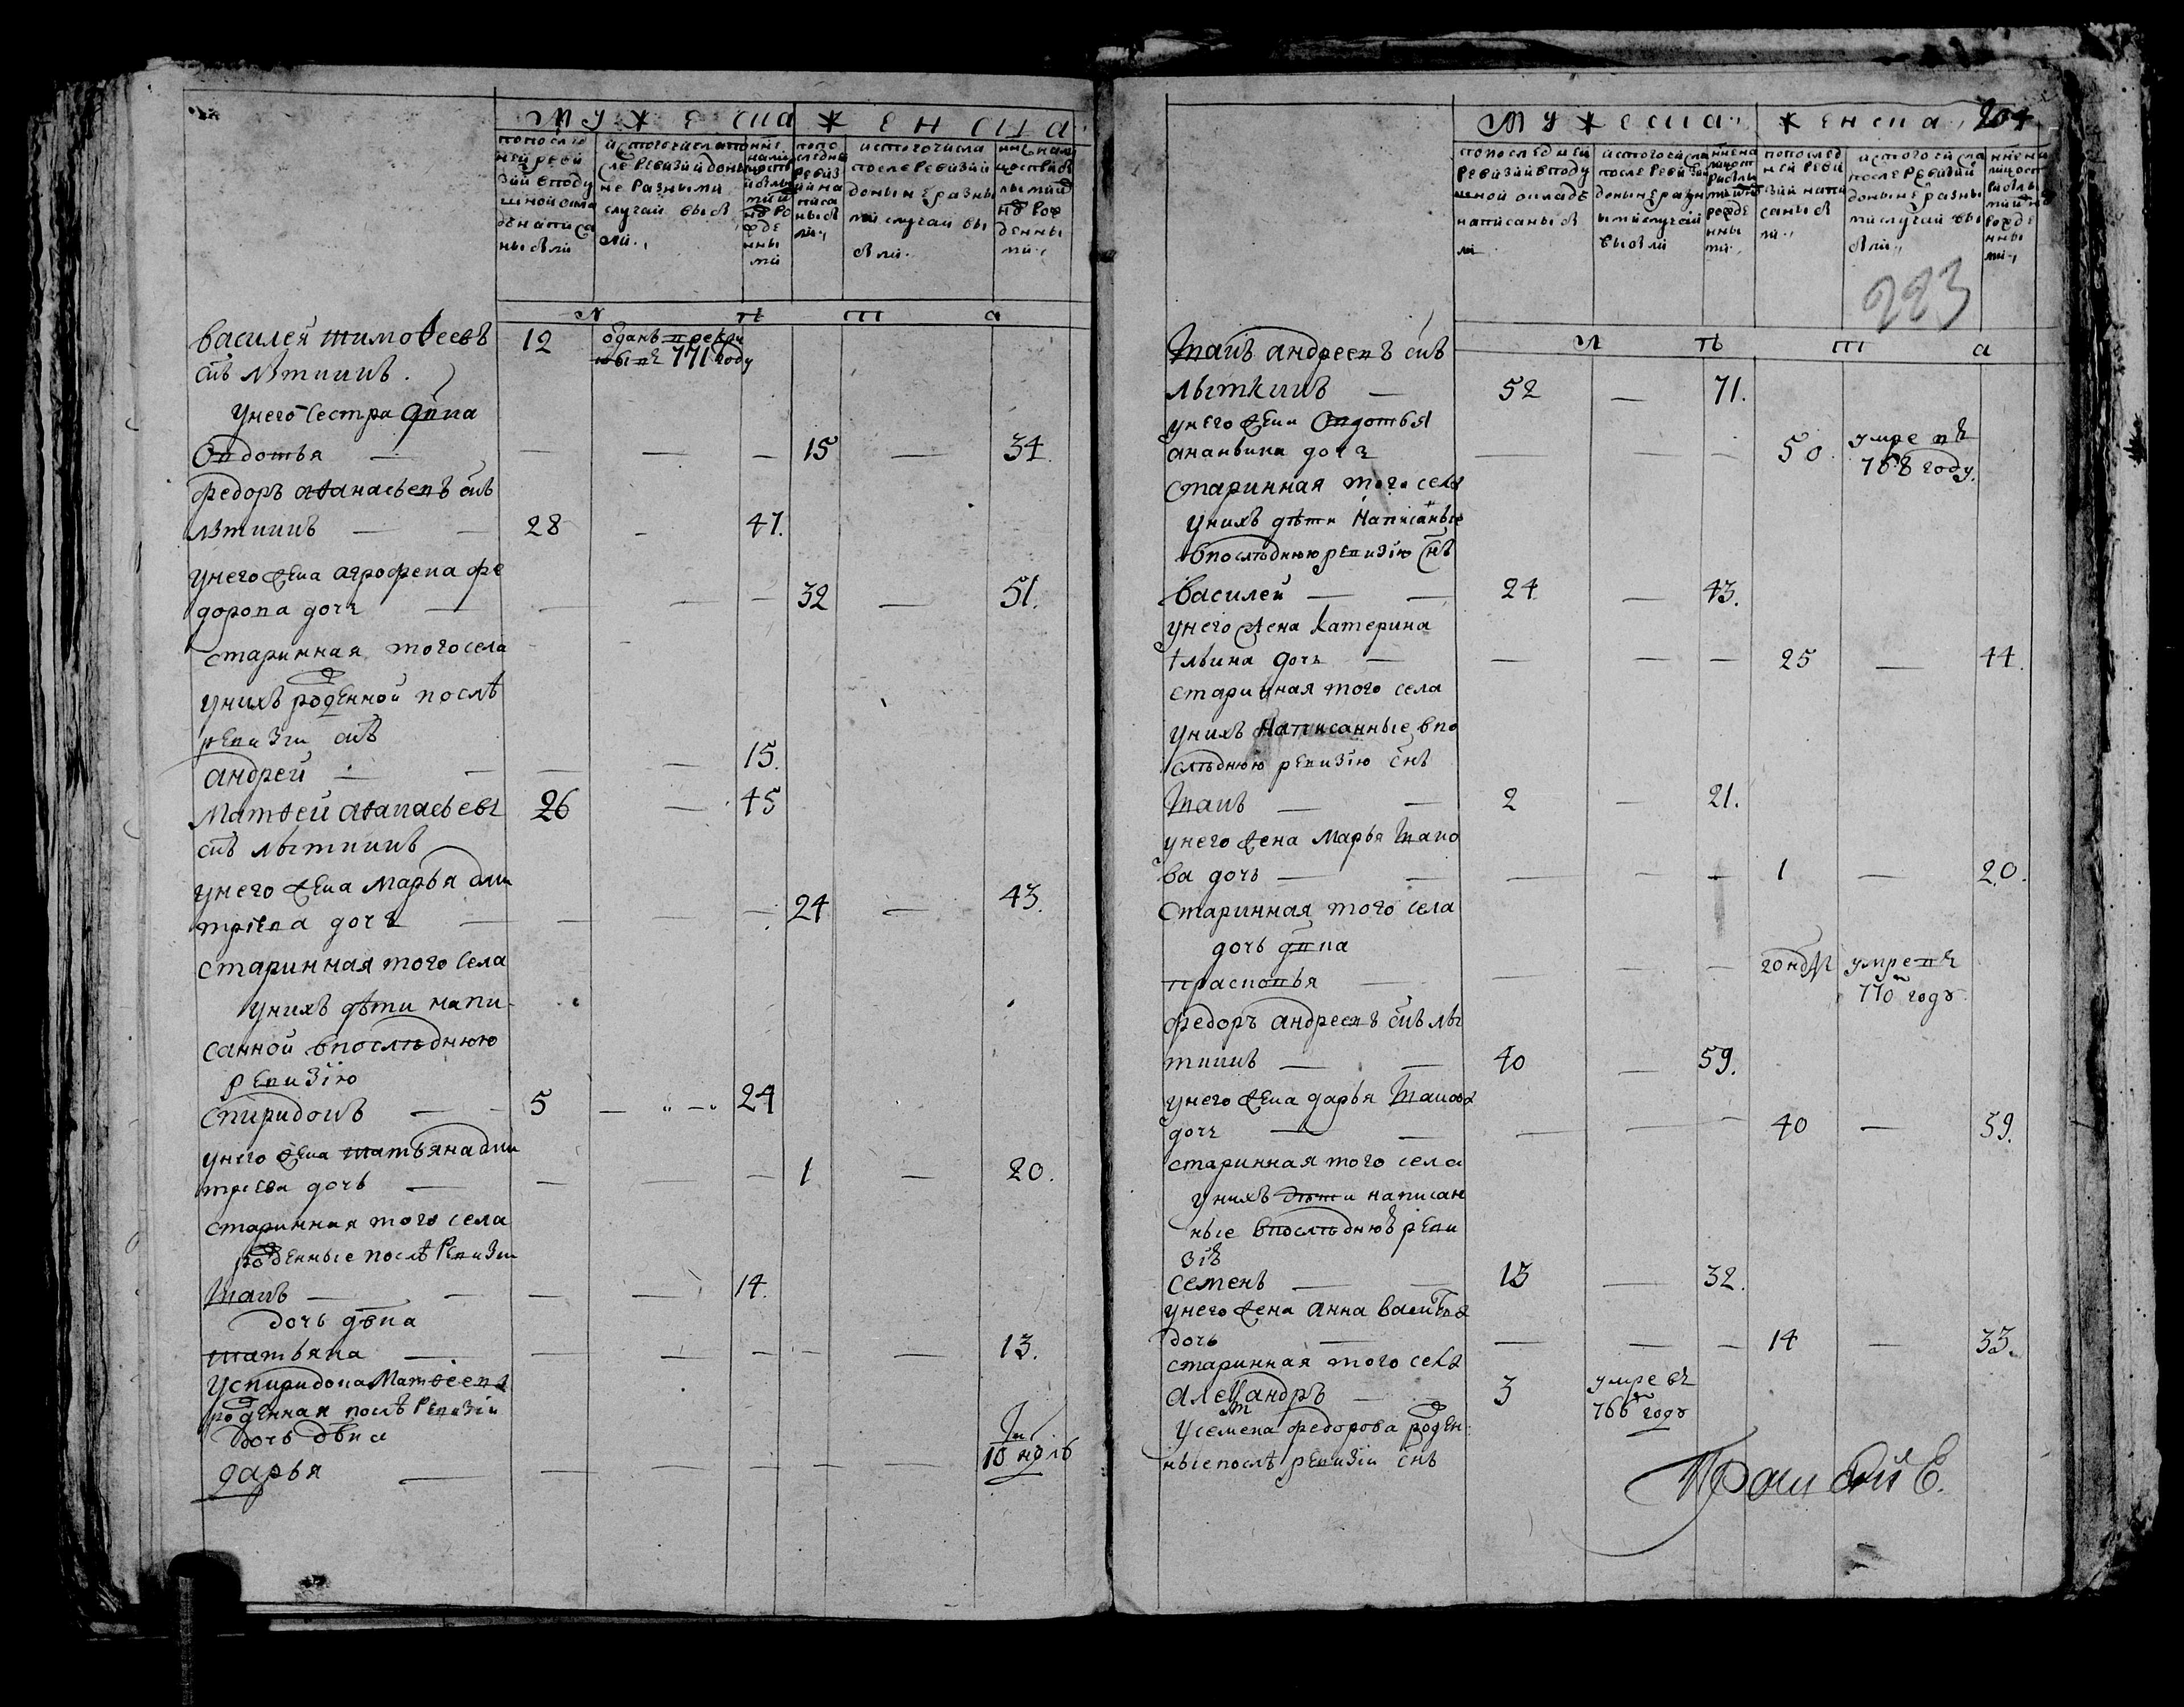 мужеска женска
попоследней ревизии вподушной окладе написаны были
ис того числа после ревизии до ныне разными случаи были
ныне на лицо с прибылыми и новорожденными
по последней ревизии написаны были
ис того числа после ревизии до ныне разными случаи выбыли
ныне на лицо с прибылыми и новорожденными
л ѣ т а
василей тимоѳеевъ 12 одань в рекру
снъ лыткинъ. ты въ 771 году
унего сестра двка
овдотья — — — — 15 — 34.
федоръ аѳанасьевъ снъ
лыткинъ — — 28 - 47.
унего жена агрофена фе
дорова дочь — — — — 32 — 51.
старинная того села
унихъ роденной послѣ
ревизи снъ
андрей — — — — 15.
Матѳей аѳанасьевъ 26 — 45
снъ лыткинъ
унего жена марья дми
триева дочь — — — — 24 — 43.
старинная того села
унихъ дѣти напи
санной впослѣднюю
ревизiю
спиридонъ — — 5 — 24
унего жена татьяна дми
треева дочь — — — — 1 — 20.
старинная того села
роденные послѣ ревизи
Иванъ — — — — 14.
дочь двка
татьяна — — — — - — 13.
успиридона Матѳеева
роденная послѣ ревизiи
дочь двка
дарья — — — — — — 10 ндль
мужеска женска 204
попоследней ревизии вподушной окладе написаны были
ис того числа после ревизии до ныне разными случаи выбыли
ныне на лицо с прибылыми и новорожденными
попоследней ревизии написаны были
ис того числа после ревизии до ныне разными случаи выбыли
ныне на лицо с прибылыми и новорожденными
223
л ѣ т а
Иванъ андреевъ снъ
лыткинъ — 52 — 71.
унего жена Овдотья
ананьина дочь — — — 50 умре въ 768 году.
старинная того села
унихъ дѣти написаные
впослѣднюю ревизiю снъ
василей — — 24 — 43.
унего жена катерина
ильина дочь — — — — 25 — 44.
старинная того села
унихъ написанные впо
слѣднюю ревизiю снъ
Иванъ — — 2 — 21.
унего жена марья Ивано
ва дочь — — — — — 1 — 20.
старинная того села
дочь двка
прасковья — — — — 20 ндль умре въ 770м годѣ
федоръ андреевъ снъ лы
ткинъ — — 40 — 59.
унего жена дарья Иванова
дочь — — — — — 40 — 59.
старинная того села
унихъ дѣти написан
ные впослѣднюю реви
зiю
семенъ — — 13 — 32.
унего жена анна васильева
дочь — — — — 14 — 33.
старинная того села
Алеѯандръ — 3 умре въ 766м годѣ
У семена федорова роден
ные послѣ ревизiи снъ